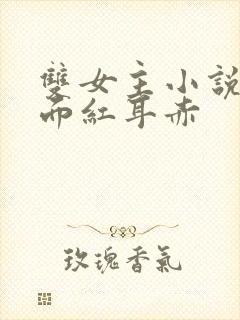 雙女主小說
面紅耳赤
玫瑰香氣